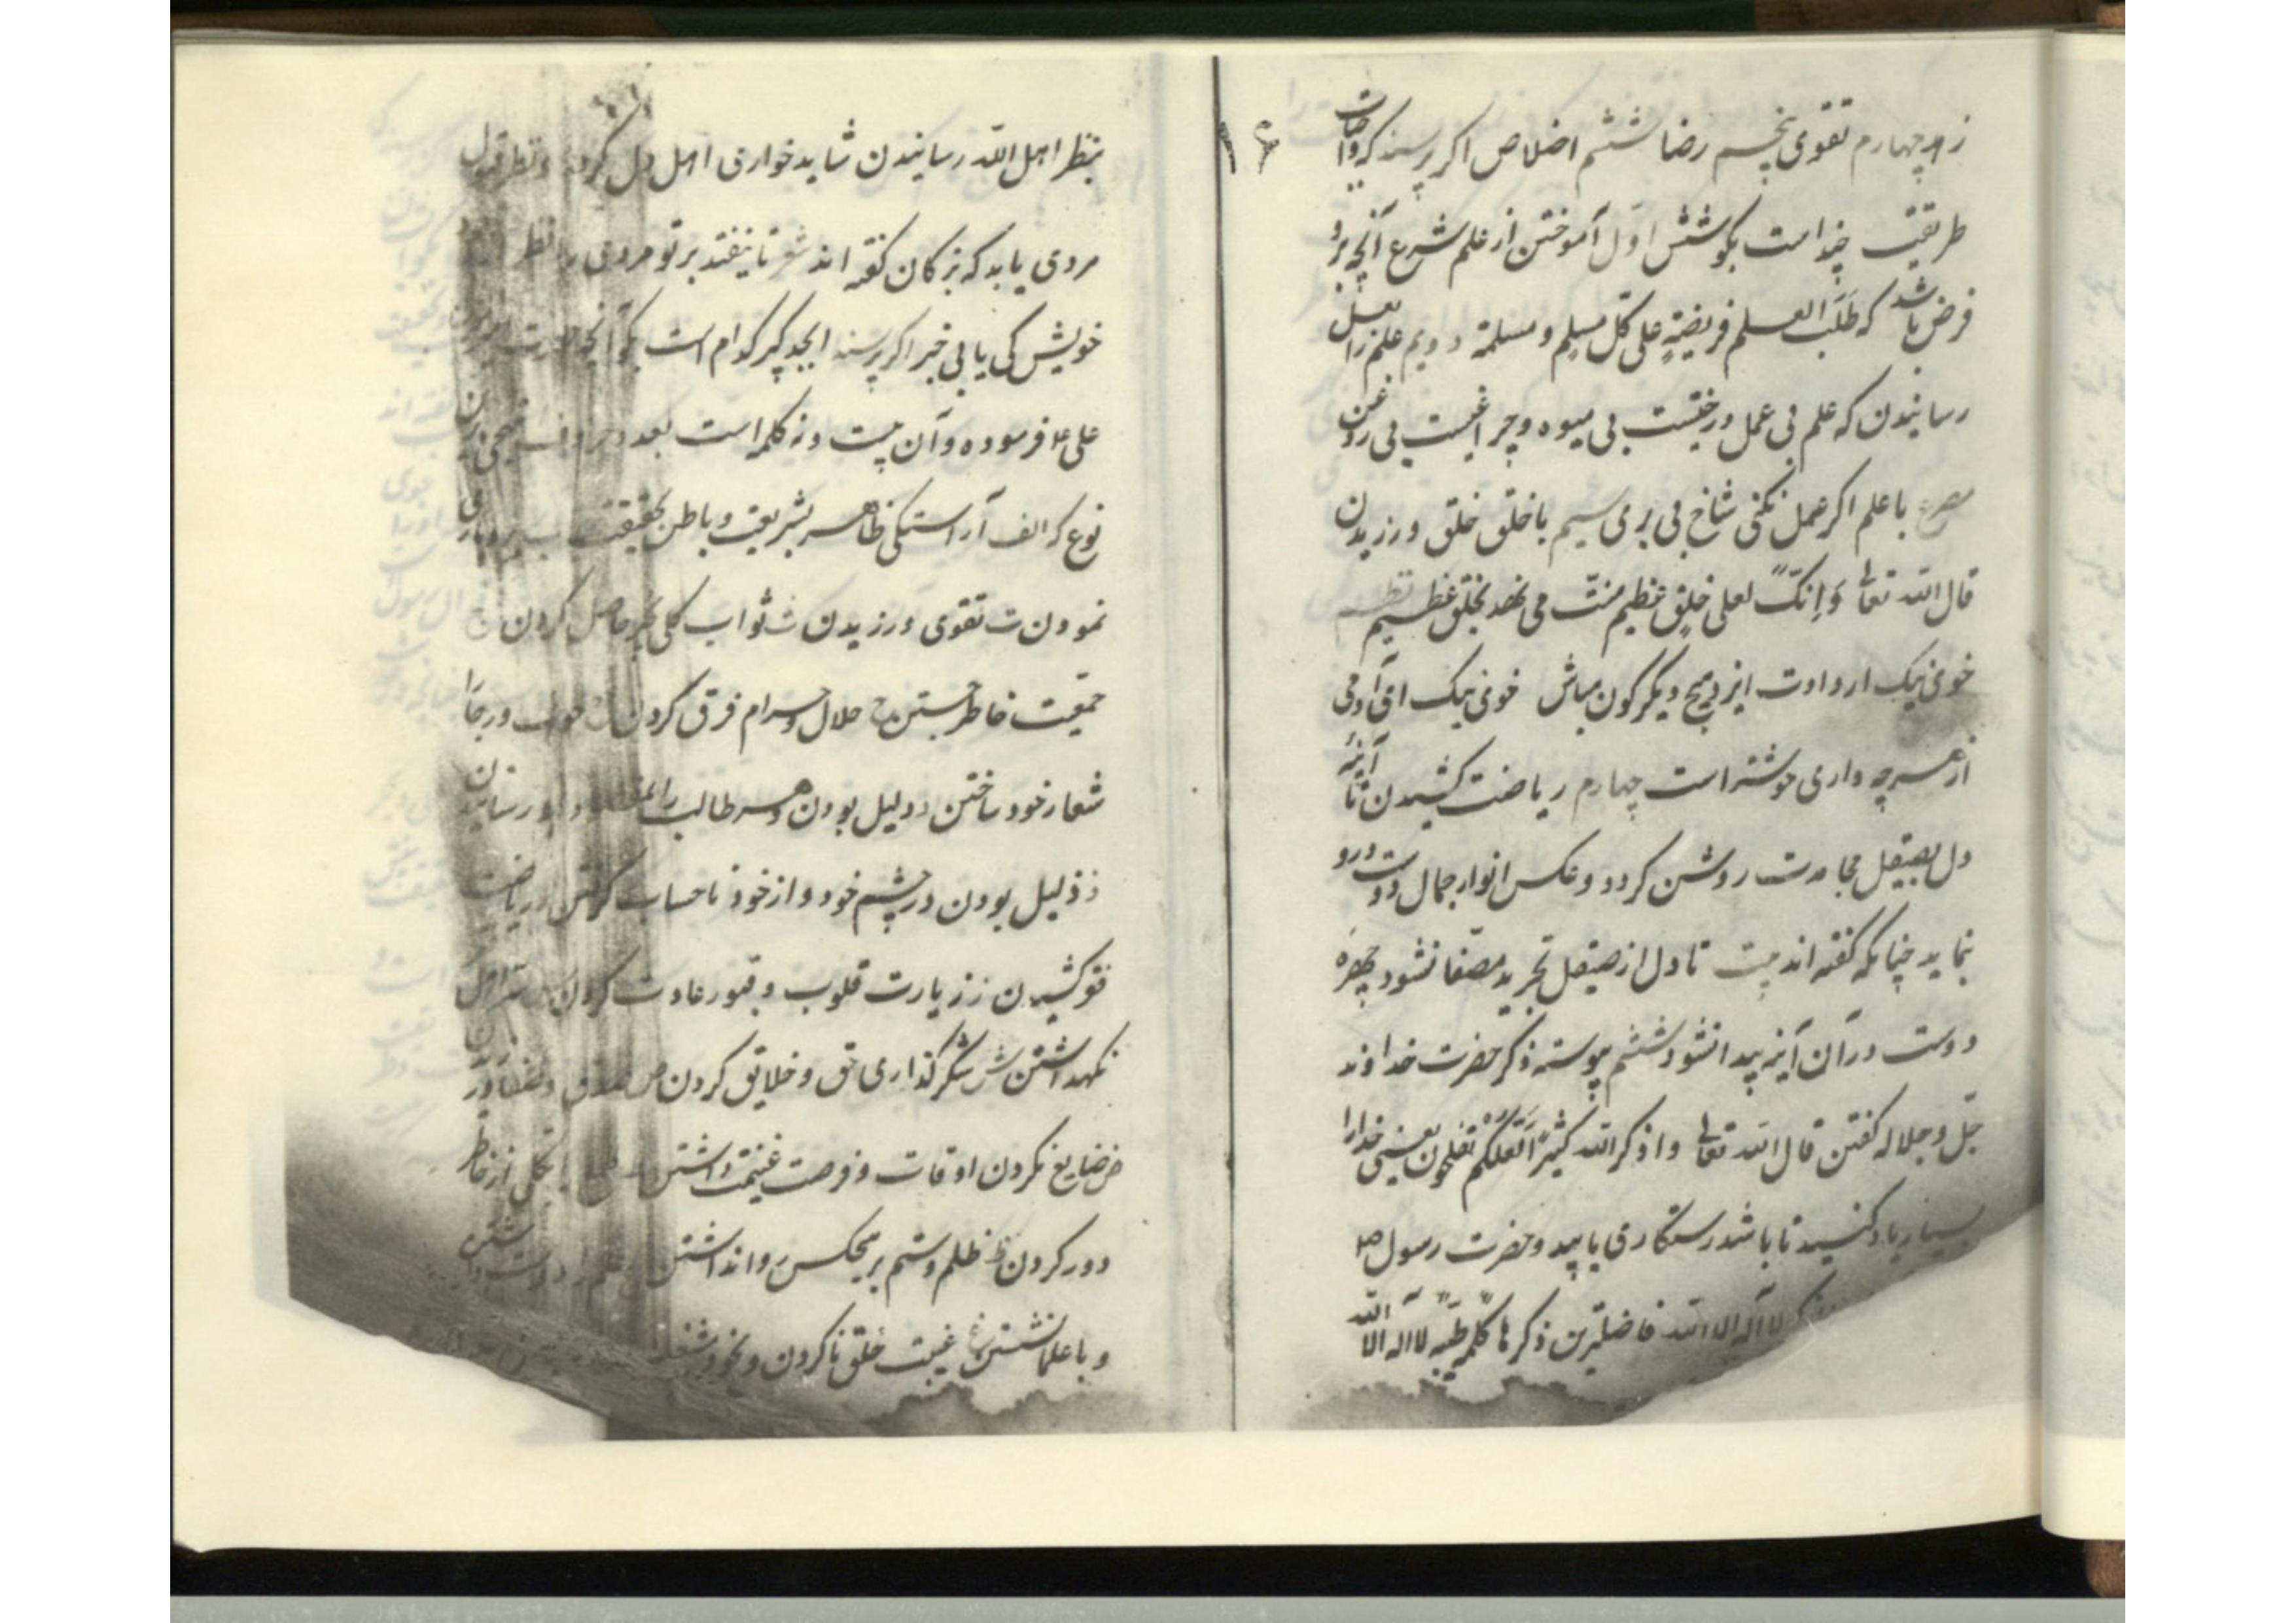 زهد چهارم تقوی پنجم رضا ششم اخلاص اکر پرسند که واجبات
طریقت چنداست بکو شش اوّل آموختن از علم شرع آنچه برو
فرض باشد که طَلَبُ العلم فریضةٍ علی کلّ مسلمٍ و مسلمة دویم علم را بعمل
رسانیدن که علم بی عمل درختیست بی میوه و چراغیست بی روغن
مصرع باعلم اکر عمل نکنی شاخ بی بری سیم باخلق خلق ورزیدن
قال الله تعالی وَاِنکَّ لعلی خلقٍ عظیم منّت می نهد بخلق عظیم نظم
خوی نیک ارداد ایزد هیچ دیگرگون مباش خوی نیک ای آدمی
از هر چه داری خوشتر است چهارم ریاضت کشیدن تا آئینهٔ
دل بصیقل مجاهدت روشن کردد و عکس انوار جمال دوست درو
نماید چنانکه کفته اند بیت تا دل از صیقل تجرید مصّفا نشود چهرهٔ
دوست در آن آینه پیدا نشود ششم پیوسته ذکر حضرت خداوند
جلّ و جلاله کفتن قال الله تعالی واذکرالله کثیراً لَعَلّکُم تفلحون یعنی خدارا
بسیار یاد کنید تا باشد رستکاری یابید و حضرت رسول ص
لا اله الا الله فاضلترین ذکرها کلمهٔ طیّبه لااله الا الله
۱۶
بنظر اهل الله رسانیدن شاید خوارق اهل دل کردد و نظر قبول
مردی یابد که بزرکان کفته اند شعر تا نیفتد بر تو مردی را نظر
خویش کی یابی خبر اکر پرسند ابجد کبیر کدام است بکو آنچه حضرت
علی ع فرموده و آن بیست و نه کلمه است بعدد حروف تهجی
نوع که الف آراستکی ظاهر بشریعت و باطن بحقیقت ب
نمودن ت تقوی ورزیدن ث ثواب کلی حاصل کردن ج
جمعیّت خاطر جستن ح حلال و حرام فرق کردن خ خوف و رجا را
شعار خود ساختن د دلیل بودن هر طالب را رسانیدن
ذ ذلیل بودن در چشم خود و از خود نا حساب کرفتن ر ریاضت
فقر کشیدن ز زیارت قلوب و قبور عادت کردن س سّر اهل
نکهداشتن ش شکر کذاری حق و خلایق کردن ص صدق و صفا
ض ضایع نکردن اوقات و فرصت غنیمت داشتن ط طمع بکلی از خاطر
دور کردن ظ ظلم و ستم بر هیچکس روانداشتن ع علم را دوست داشتن
و با علما نشستن غ غیبت خلق ناکردن و بخود